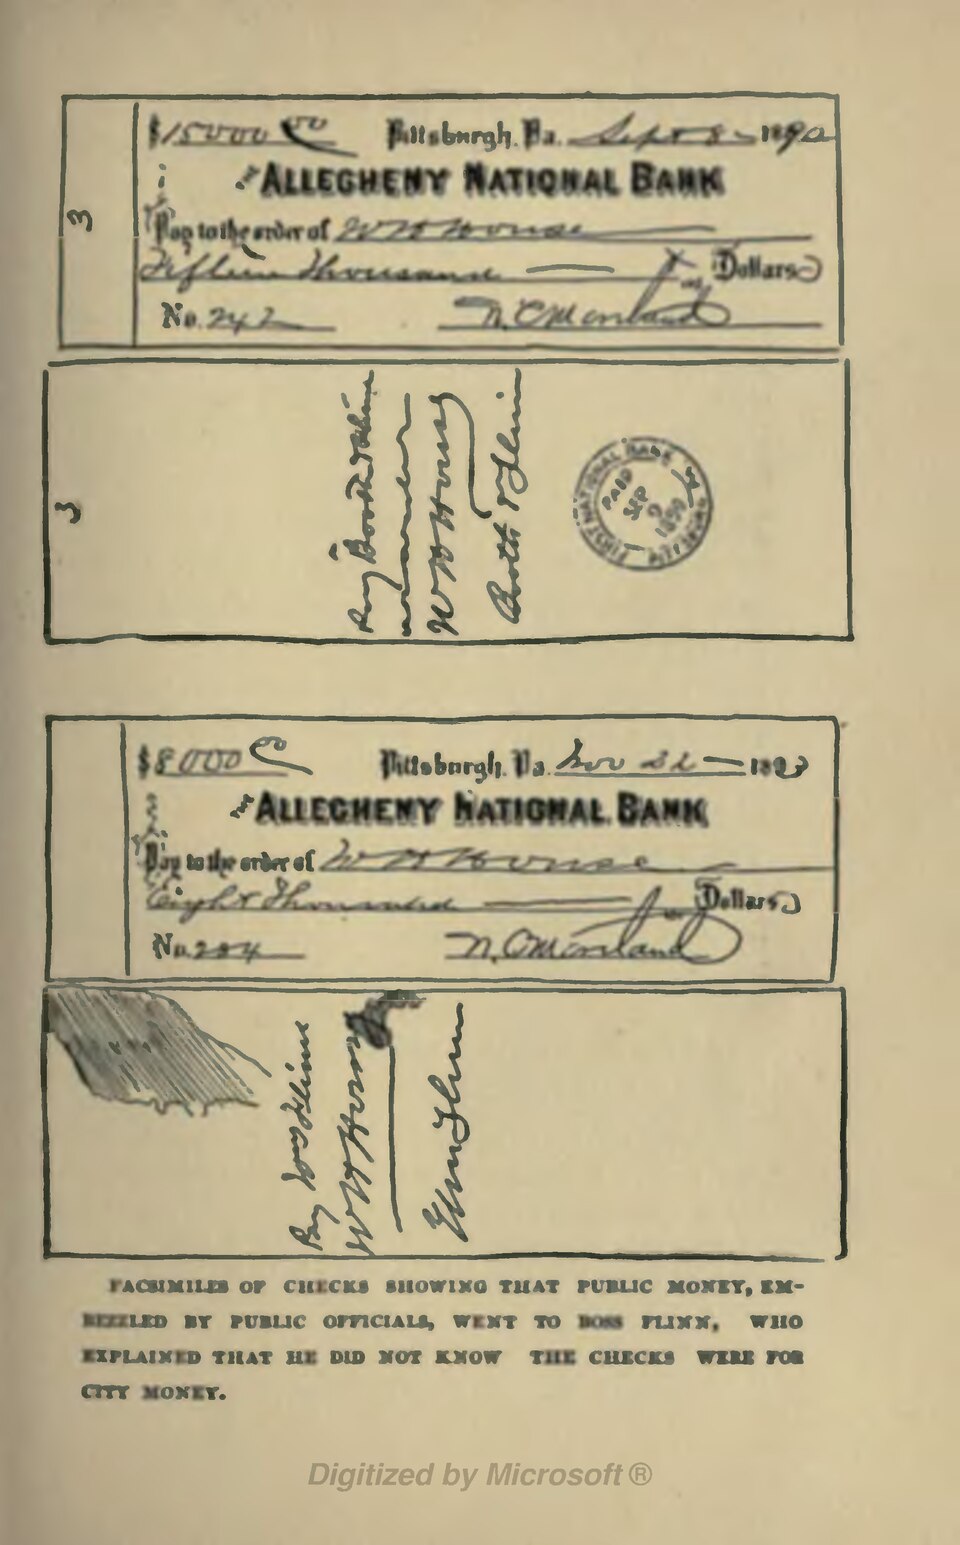 $15000 00 Pittsburgh, Pa. Sept 8 1890
THE ALLEGHENY NATIONAL BANK
Pay to the order of W H House
Fifteen Thousand Dollars
No. 242 W. C. Moreland
3
Pay Booth & Flinn
or order
W H House
Booth & Flinn
FIRST NATIONAL BANK
PAID
SEP
9
1890
3
$8000 00 Pittsburgh, Pa. Nov 1893
THE ALLEGHENY NATIONAL BANK
Pay to the order of W H House
Eight Thousand Dollars
No. 284 W. C. Moreland
Pay Wm Flinn
W H House
Wm Flinn
FACSIMILES OF CHECKS SHOWING THAT PUBLIC MONEY, EM-
BEZZLED BY PUBLIC OFFICIALS, WENT TO BOSS FLINN, WHO
EXPLAINED THAT HE DID NOT KNOW THE CHECKS WERE FOR
CITY MONEY.
Digitized by Microsoft ®